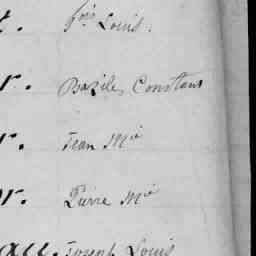 t. fois Louis.
r. Bazile, Constant
r. Jean Mie
or. Pierre Mie
au. Joseph Louis